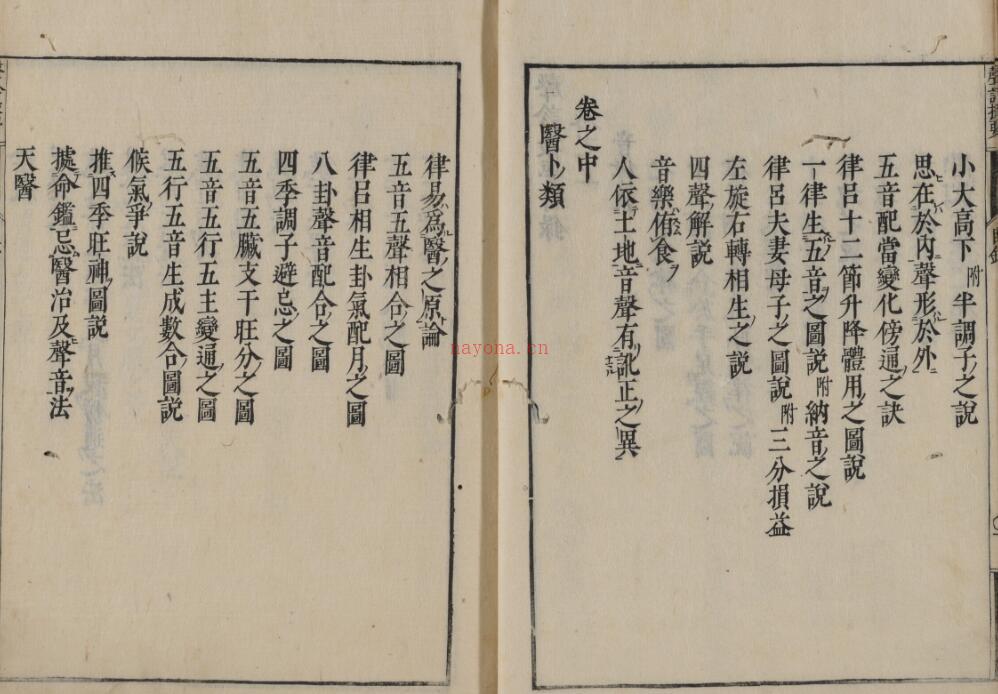 小大高下附半調子之說
思在於內聲形於外
五音配當變化傍通之訣
律呂十二節升降體用之圖說
一律生五音之圖說附納音之說
律呂夫妻母子之圖說附三分損益
左旋右轉相生之說
四聲解説
音樂侑食
人依土地音聲有訛正之異
卷之中
醫卜類
律易爲醫之原論
五音五聲相合之圖
律呂相生卦氣配月之圖
八卦聲音配合之圖
四季調子避忌之圖
五音五臟支干旺分之圖
五音五行五主變通之圖
五行五音生成數合圖説
候氣爭說
推四季旺神圖説
據命鑑忌醫治及聲音法
天醫
nayona.cn